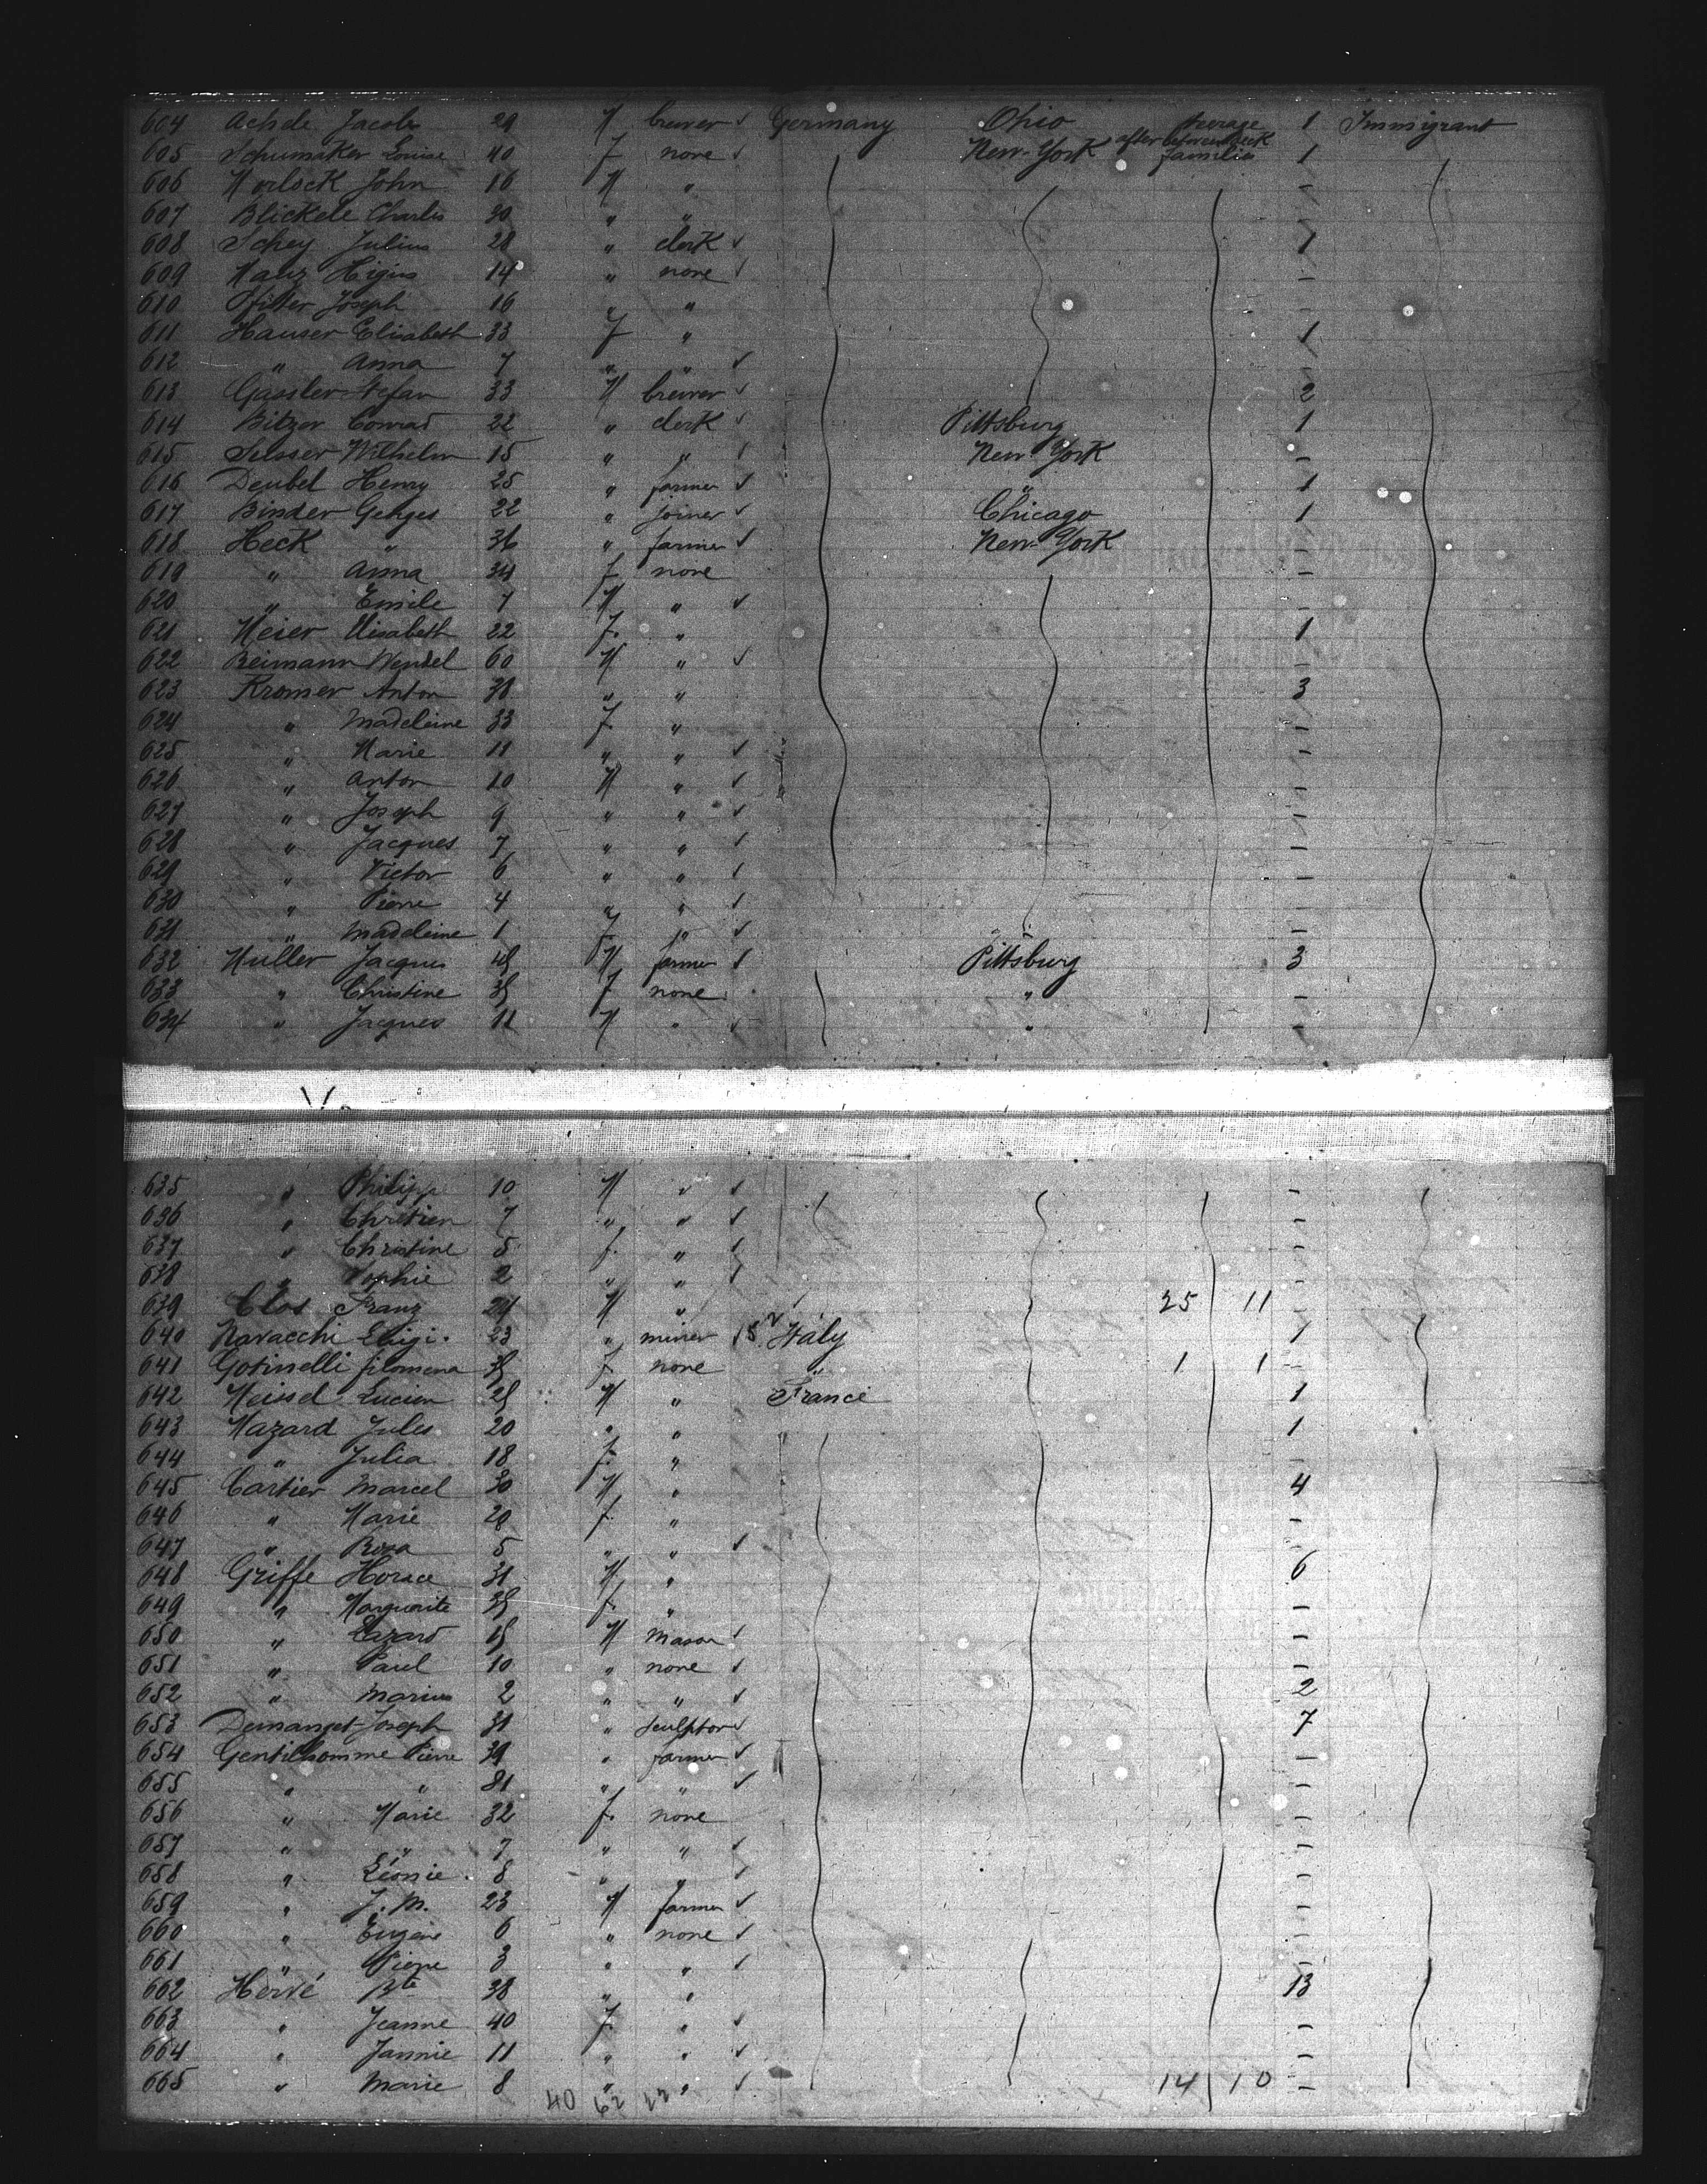 604 Achele Jacob 29 M brewer ✓ Germany Ohio steerage 1 Immigrant
605 Schumaker Louise 40 f none ✓ New-York after between deck families 1
606 Morlock John 16 M " -
607 Blickele Charles 30 " " -
608 Schey Julius 28 " clerk ✓ 1
609 Manz Higius 14 " none ✓ -
610 Joseph 16 " " -
611 Hauser Elisabeth 33 f " 1
612 " Anna 7 " " ✓ -
613 Gassler Stefan 33 M brewer ✓ 2
614 Bitzer Conrad 22 " clerk ✓ Pittsburg 1
615 Wilhelm 15 " " ✓ New-York -
616 Deubel Henry 25 " farmer ✓ " 1
617 Binder Gehges 22 " joiner ✓ Chicago 1
618 Heck " 36 " farmer ✓ New-York -
619 " Anna 34 f none -
620 " Emile 7 M " ✓ -
621 Meier Elisabeth 22 f. " 1
622 Reimann Wendel 60 M " ✓ -
623 Kromer Anton 38 " " 3
624 " Madeleine 33 f. " -
625 " Marie 11 " " ✓ -
626 " Anton 10 M " ✓ -
627 " Joseph 9 " " ✓ -
628 " Jacques 7 " " ✓ -
629 " Victor 6 " " ✓ -
630 " Pierre 4 " " ✓ -
631 " Madeleine 1 f " ✓ " -
632 Muller Jacques 45 M farmer ✓ Pittsburg 3
633 " Christine 35 f none " -
634 " Jacques 11 M " ✓ " -
635 " Philippe 10 M " ✓ -
636 " Chrétien 7 " " ✓ -
637 " Christine 5 f. " ✓ -
638 " Sophie 2 " " ✓ -
639 Clos Franz 24 M " 25 11 -
640 Navacchi Luigi. 23 " miner ✓ Italy 1
641 Gotinelli filomena 35 f none " 1 1 -
642 Meissel Lucien 25 M " France 1
643 Mazard Jules 20 " " 1
644 " Julia 18 f. " -
645 Cartier Marcel 30 M " 4
646 " Marie 28 f. " -
647 " Rosa 5 " " ✓ -
648 Griffe Horace 31 M " 6
649 " Marguerite 35 f. " -
650 " Lazard 15 M mason ✓ -
651 " Paul 10 " none ✓ -
652 " Marius 2 " " ✓ 2
653 Demanget Joseph 31 " sculptor ✓ 7
654 Gentilhomme Pierre 39 " farmer ✓ -
655 " " 81 " " ✓ -
656 " Marie 32 f. none -
657 " " 7 " " ✓ -
658 " Léonie. 8 " " ✓ -
659 " J. M. 23 M farmer ✓ -
660 " Eugène 6 " none ✓ -
661 " Pierre 3 " " ✓ -
662 Hervé Bte 38 " " 13
663 " Jeanne 40 f. " ✓ -
664 " Jannie 11 " " ✓ -
665 " Marie 8 " " ✓ 14 10 -
40 62 22